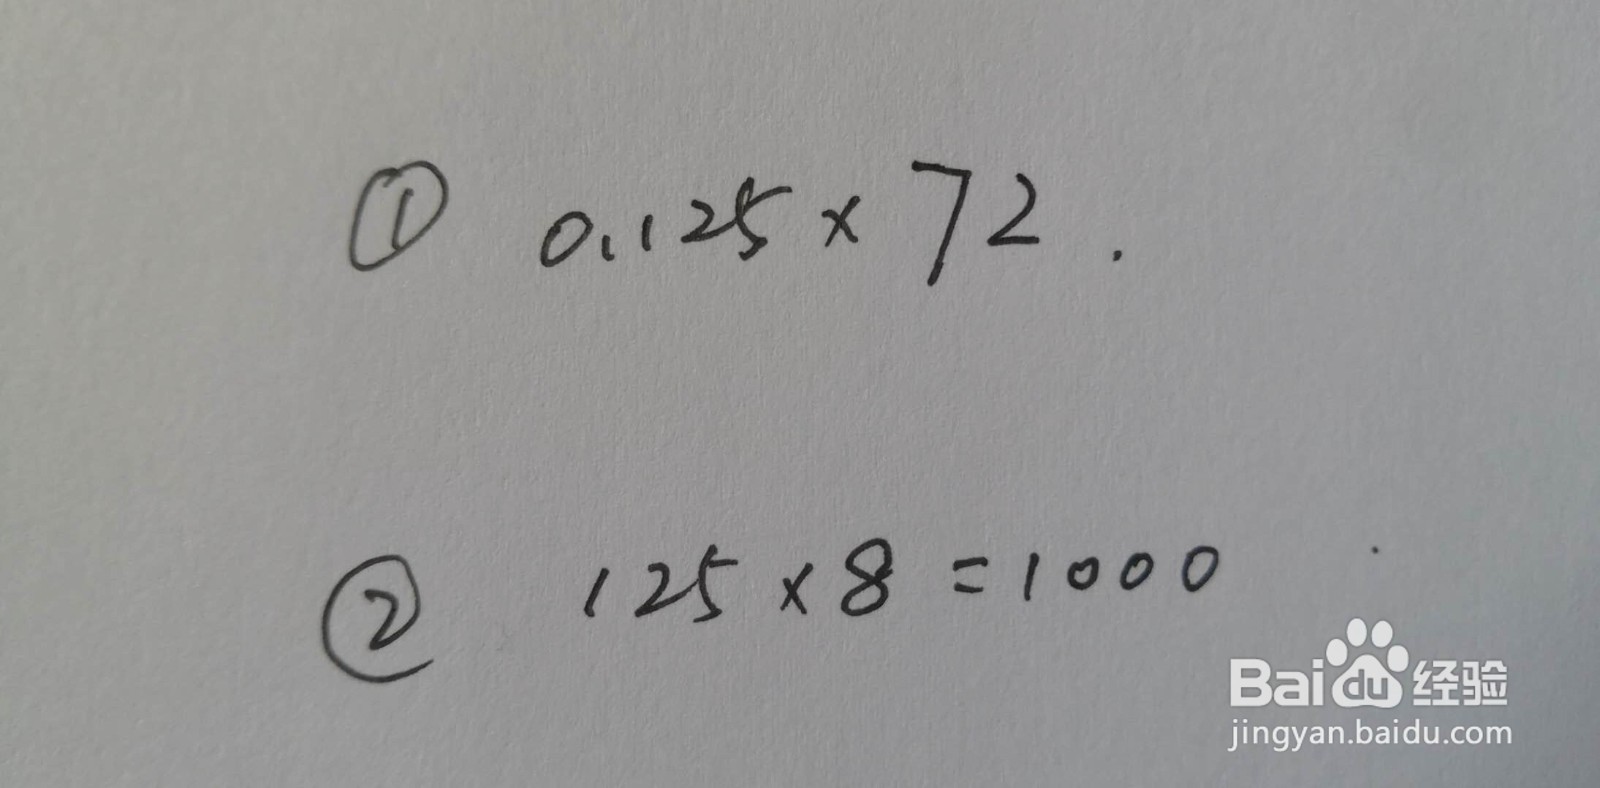 ① 0.125×72.
② 125×8=1000
Baidu经验
jingyan.baidu.com